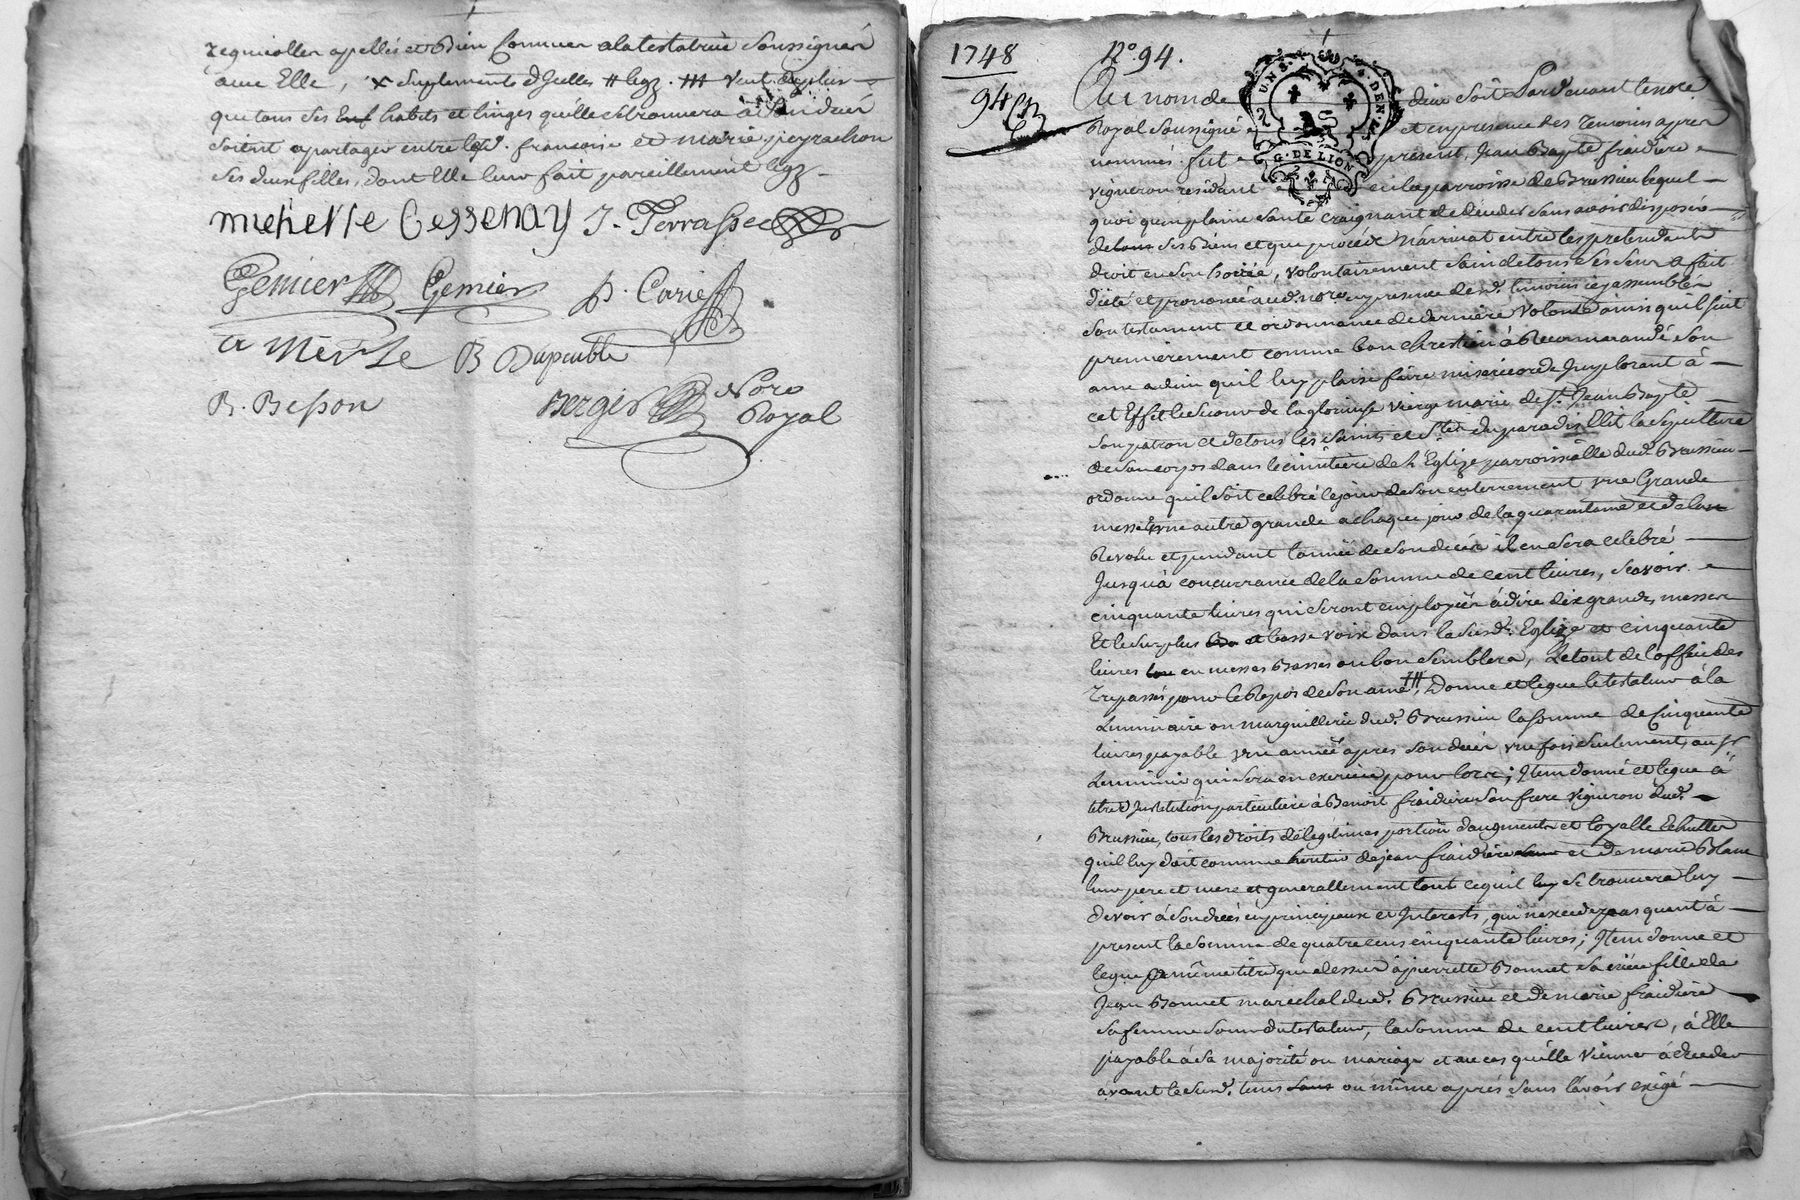 requis aller apellés et Bien Connues a la testatrice Soussignée
avec Elle, x Suplements d'Icelles # legz. ### Veut de plus
que tous ses Enf habits et linges qu'elle délivrera à Son decés
Soient a partager entre lesd. francoise et marie peyrachon
Ses deux filles, dont Elle leur fait pareillement legz.
michelle Gessenay J. Terrasse
Gemier Gemier p. Carie
a merle B Dupeuble
B. Besson Bergier Nore
Royal
1748 No. 94.
94
Au nom de dieu Soit Pardevant le nore
Royal Soussigné et en presence des temoins apres
nommés fut present, Jean Bapte fraidiere
vigneron residant en la parroisse de Brussieu lequel
quoi qu'en plaine Santé craignant de deceder Sans avoir disposé
de tous Ses Biens et que procès n'arrivat entre les pretendants
droit en Son hoirie, volontairement Sain de tous Ses Sens a fait
dicté et prononcé aud. nore en presence desd. temoins icy assemblés
Son testament et ordonnance de derniere volonté ainsi qu'il Suit
premierement comme bon chrestien à Recommandé Son
ame a dieu qu'il luy plaise faire misericorde Implorant à
cet Effet le Secours de la glorieuse vierge marie de St. Jean Bapte
Son patron et de tous les Saints et Stes du paradis Elit la Sepulture
de Son corps dans le cimitiere de l'Eglise parroissialle dud. Brussieu
ordonne qu'il Soit celebré le jour de Son enterrement une Grande
messe une autre grande a chaque jour de la quarantaine et de l'an
Revolu et pendant l'année de Son decés il en Sera celebré
Jusqu'à concurrance de la Somme de cent livres, Scavoir
cinquante livres qui Seront employées à dire dix grandes messes
Et le Surplus Ba et basse voix dans la Susd. Eglise et cinquante
livres en messes Basses ou bon Semblera, Le tout de l'office des
Trepassés pour le Repos de Son ame ###, Donne et legue le testateur à la
Luminaire ou marguillerie dud. Brussieu la Somme de Cinquante
livres payable une année apres Son decés une fois Seulement au Sr
Luminier qui Sera en exercice pour lors; Item donne et legue à
titre d'Institution particuliere à Benoit fraidiere Son frere vigneron dud.
Brussieu, tous les droits de legitimes portion d'augment et loyalle Echutte
qu'il luy doit comme heritier de jean fraidiere et de marie Blanc
leur pere et mere et generallement tout ce qu'il luy Se trouvera luy
devoir à Son decés en principaux et Interests, qui n'excede pas quant à
present la Somme de quatre cens cinquante livres; Item donne et
legue même titre que dessus à pierrette Bonnet Sa niéce fille de
Jean Bonnet marechal dud. Brussieu et de marie fraidiere
Sa femme Soeur du testateur, la Somme de cent livres, à Elle
payable à Sa majorité ou mariage et au cas qu'elle vienne à deceder
avant le Susd. tems ou même aprés Sans l'avoir exigé
G. DE LION